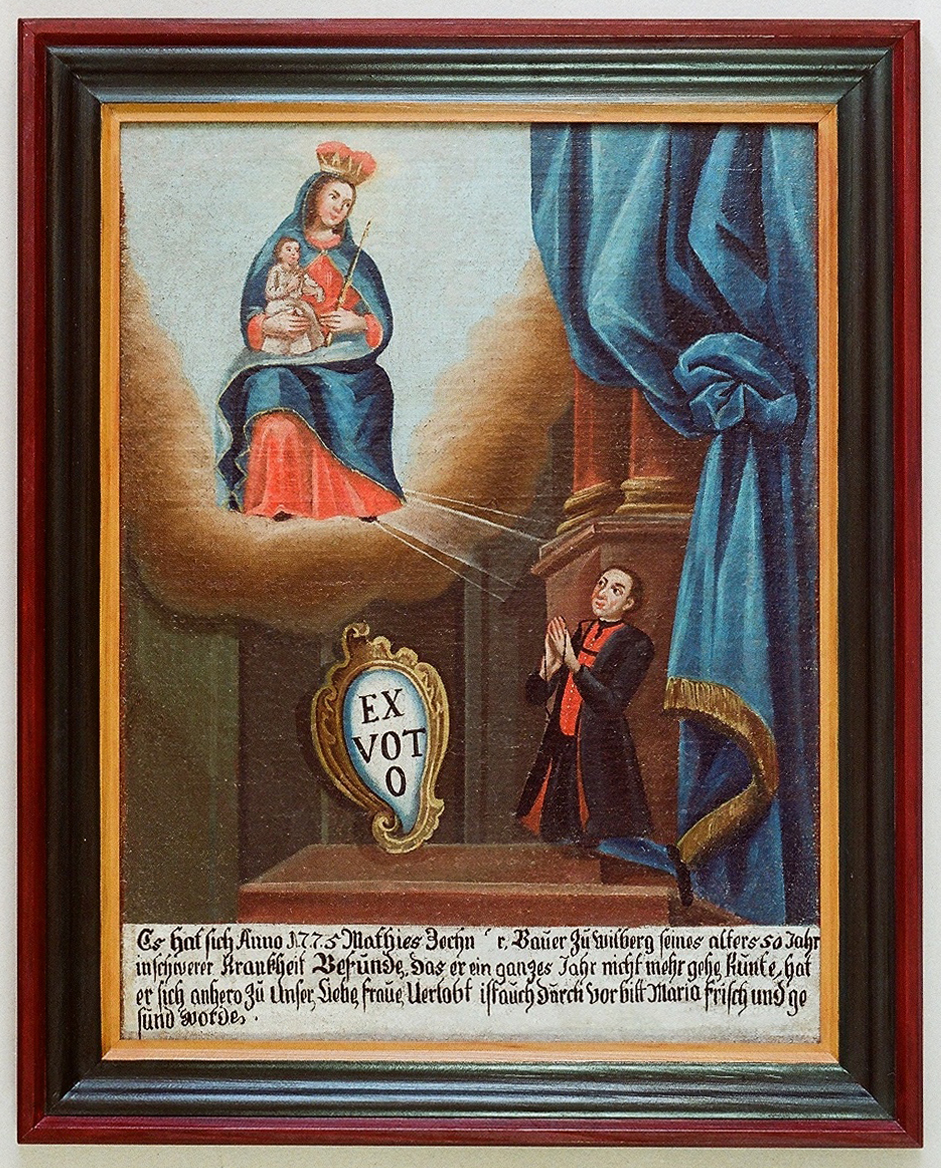 EX
VOT
O
Es hat sich Anno 1775 Mathies Zechn r. Bauer Zu Wilberg seines alters 50 Jahr
in schwerer Krankheit Befunde, das er ein ganzes Jahr nicht mehr gehe Kunte, hat
er sich anhero Zu Unser, Liebe, fraue, Verlobt ist auch durch vor bitt Maria frisch und ge
sund worde,.